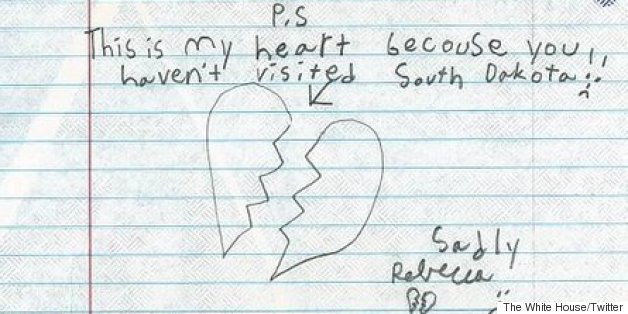 P.S
This is my heart becouse you!!
haven't visited South Dakota
Sadly
Rebecca
The White House/Twitter